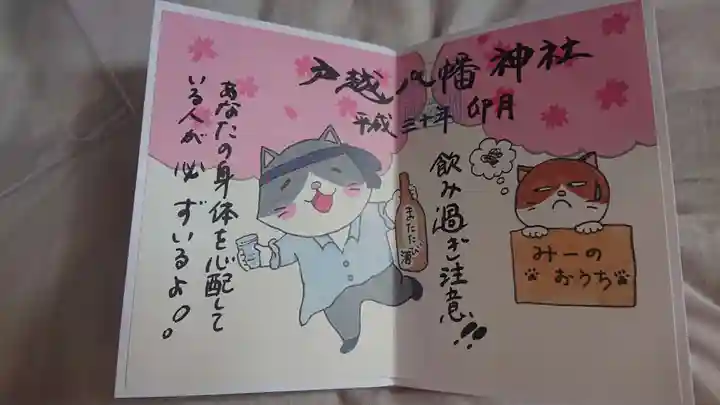 戸越八幡神社
平成三十年 卯月
飲み過ぎ注意!!
みーの
おうち
またたび酒
あなたの身体を心配して
いる人が必ずいるよ。